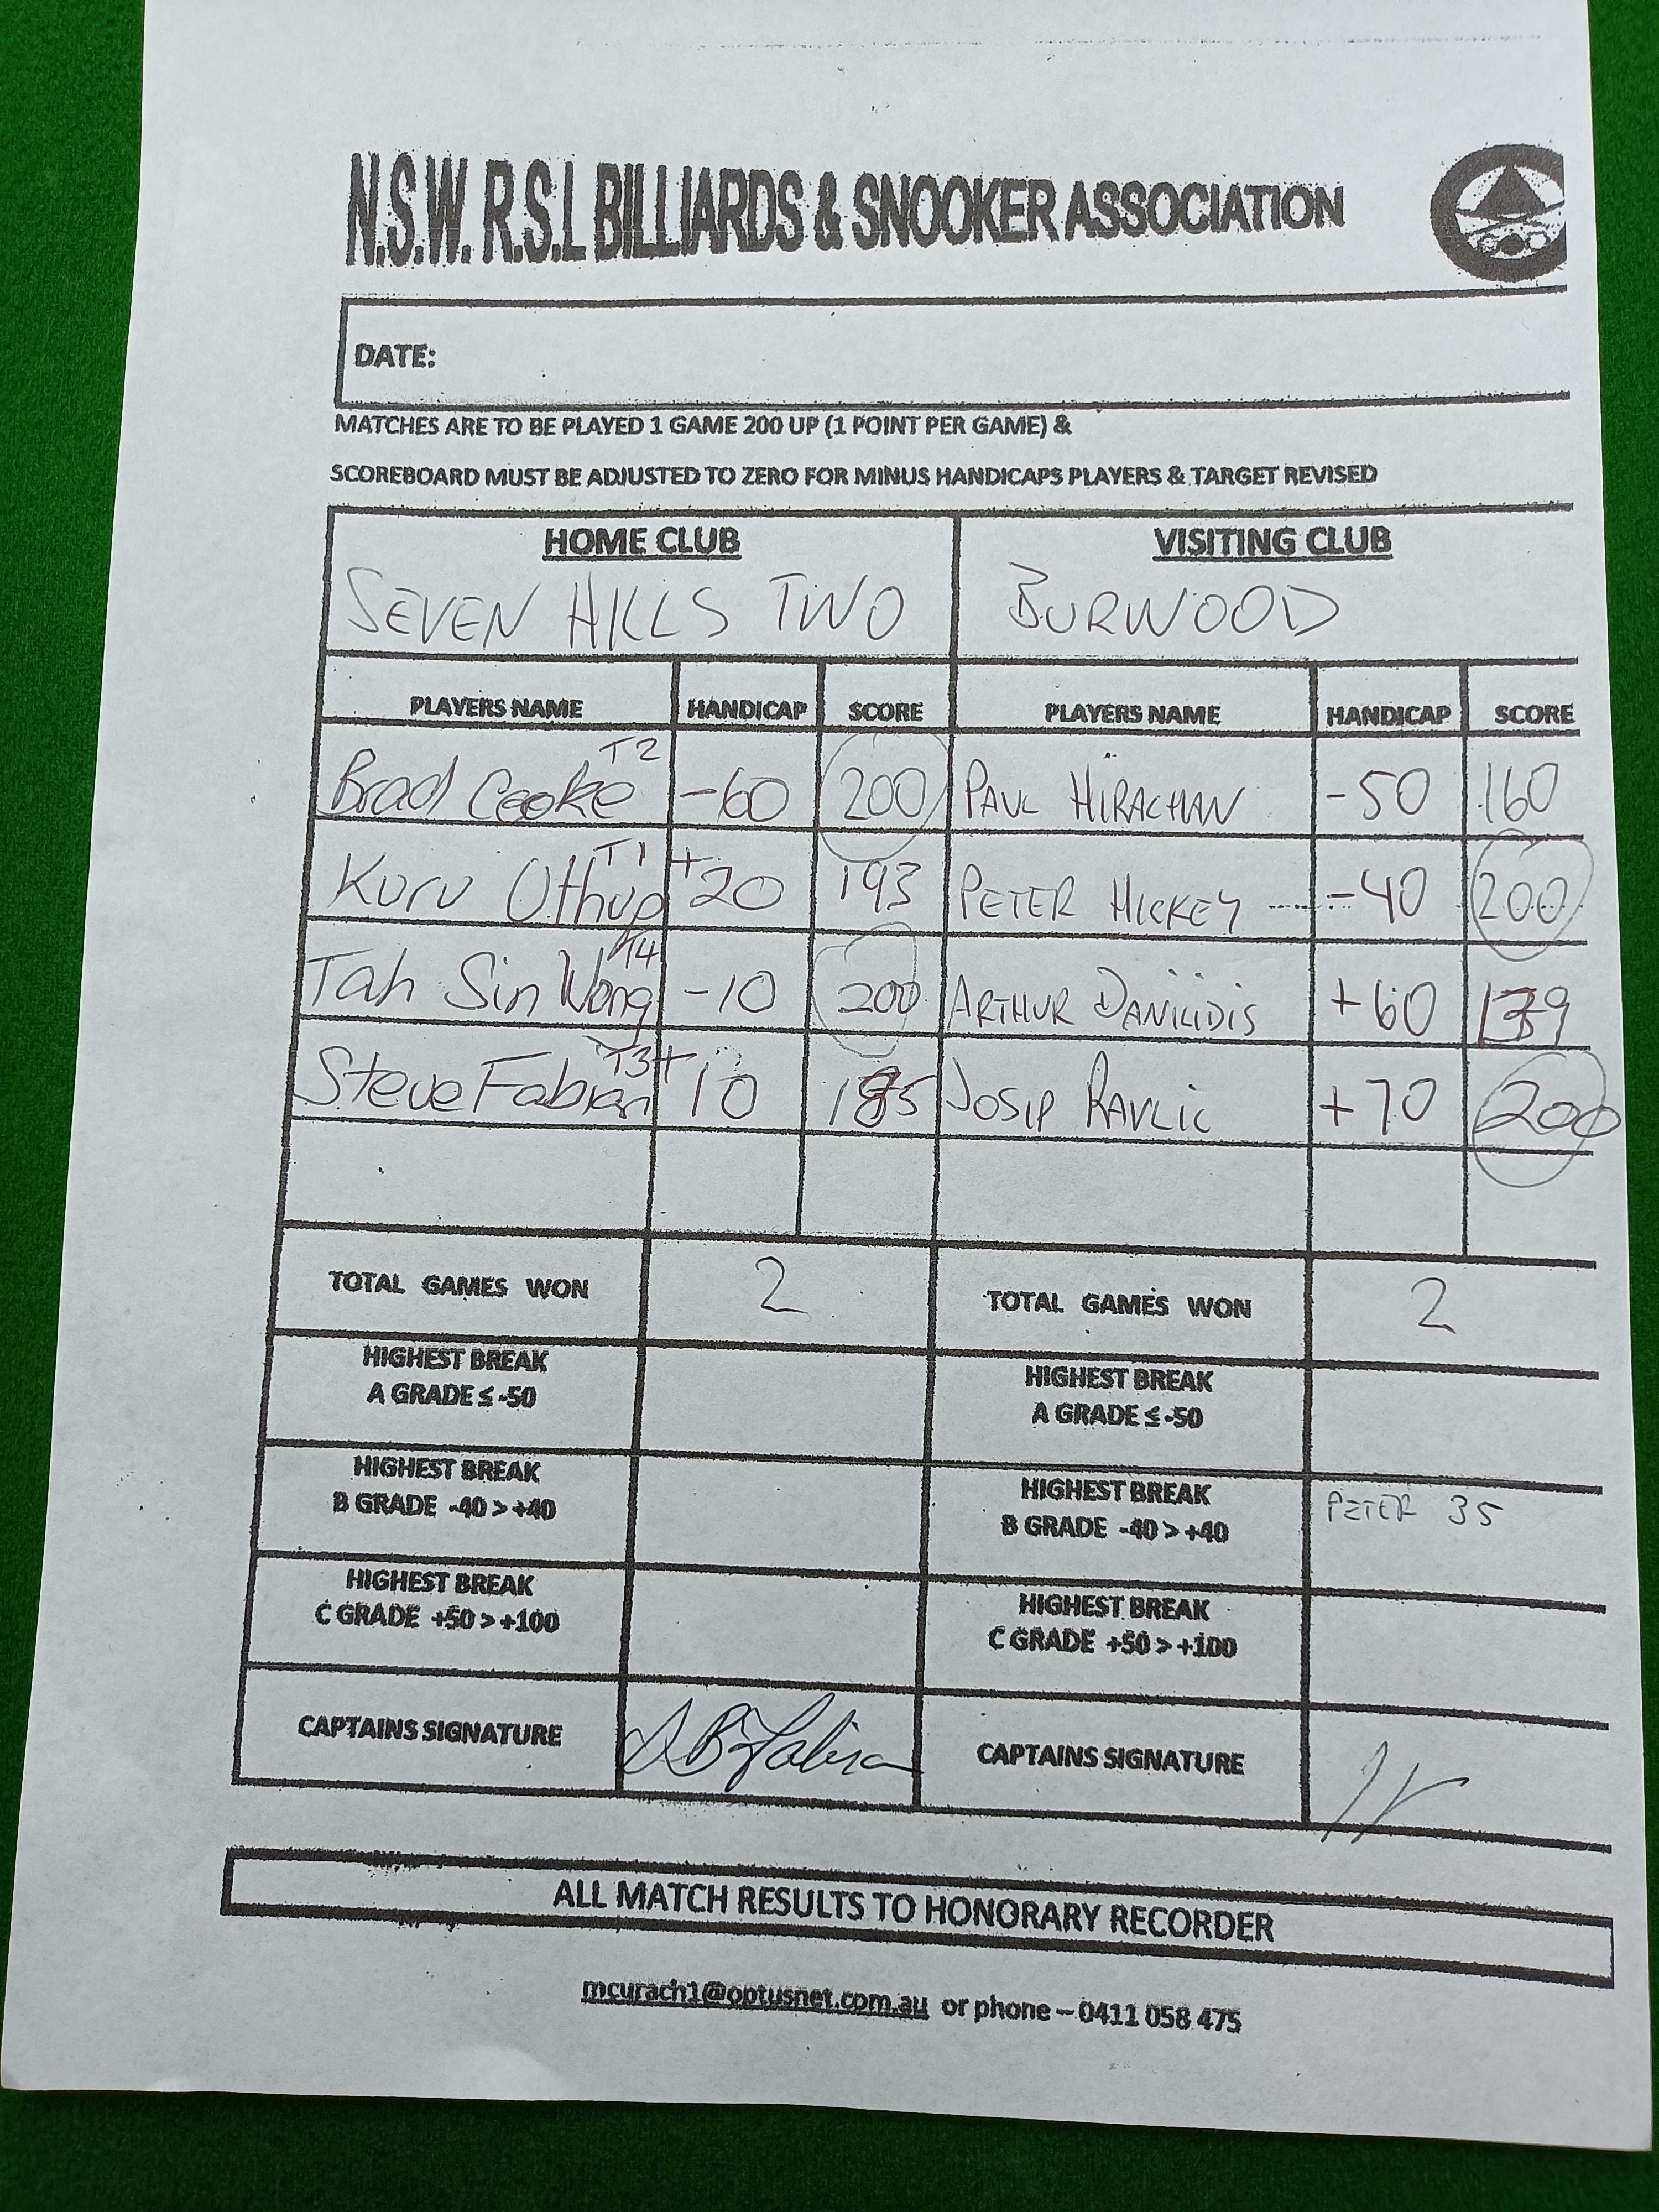 N.S.W. R.S.L BILLIARDS & SNOOKER ASSOCIATION
DATE:
MATCHES ARE TO BE PLAYED 1 GAME 200 UP (1 POINT PER GAME) &
SCOREBOARD MUST BE ADJUSTED TO ZERO FOR MINUS HANDICAPS PLAYERS & TARGET REVISED
HOME CLUB VISITING CLUB
SEVEN HILLS TWO BURWOOD
PLAYERS NAME HANDICAP SCORE PLAYERS NAME HANDICAP SCORE
Brad Cooke T2 -60 200 PAUL HIRACHAN -50 160
Kuru Othup T1 +20 193 PETER HICKEY -40 200
Tah Sin Wong T4 -10 200 ARTHUR DANILIDIS +60
Steve Fabian T3 +10 JOSIP RAVLIC +70 200
TOTAL GAMES WON 2 TOTAL GAMES WON 2
HIGHEST BREAK HIGHEST BREAK
A GRADE ≤ -50 A GRADE ≤ -50
HIGHEST BREAK HIGHEST BREAK
B GRADE -40 > +40 B GRADE -40 > +40 PETER 35
HIGHEST BREAK HIGHEST BREAK
C GRADE +50 > +100 C GRADE +50 > +100
CAPTAINS SIGNATURE CAPTAINS SIGNATURE
ALL MATCH RESULTS TO HONORARY RECORDER
mcurach1@optusnet.com.au or phone – 0411 058 475